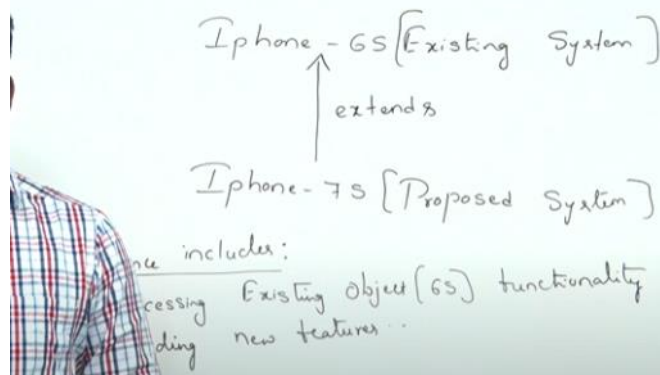 Iphone - 6S [Existing System]
extends
Iphone - 7S [Proposed System]
nce includes:
cessing Existing object (6S) functionality
ding new features..